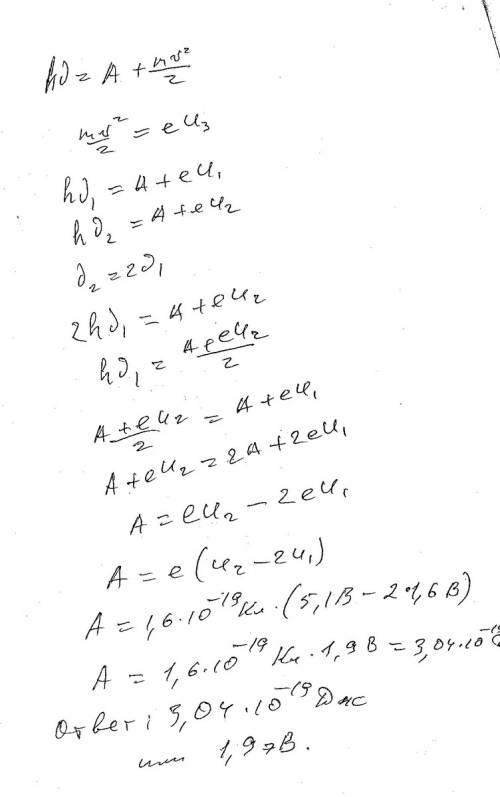 hν = A + mv²/2
mv²/2 = eu₃
hν₁ = A + eu₁
hν₂ = A + eu₂
ν₂ = 2ν₁
2hν₁ = A + eu₂
hν₁ = A + eu₂/2
A + eu₂/2 = A + eu₁
A + eu₂ = 2A + 2eu₁
A = eu₂ − 2eu₁
A = e(u₂ − 2u₁)
A = 1,6·10⁻¹⁹Кл·(5,1В − 2·1,6В)
A = 1,6·10⁻¹⁹Кл·1,9В = 3,04·10⁻¹⁹
Ответ: 3,04·10⁻¹⁹Дж
или 1,9эВ.